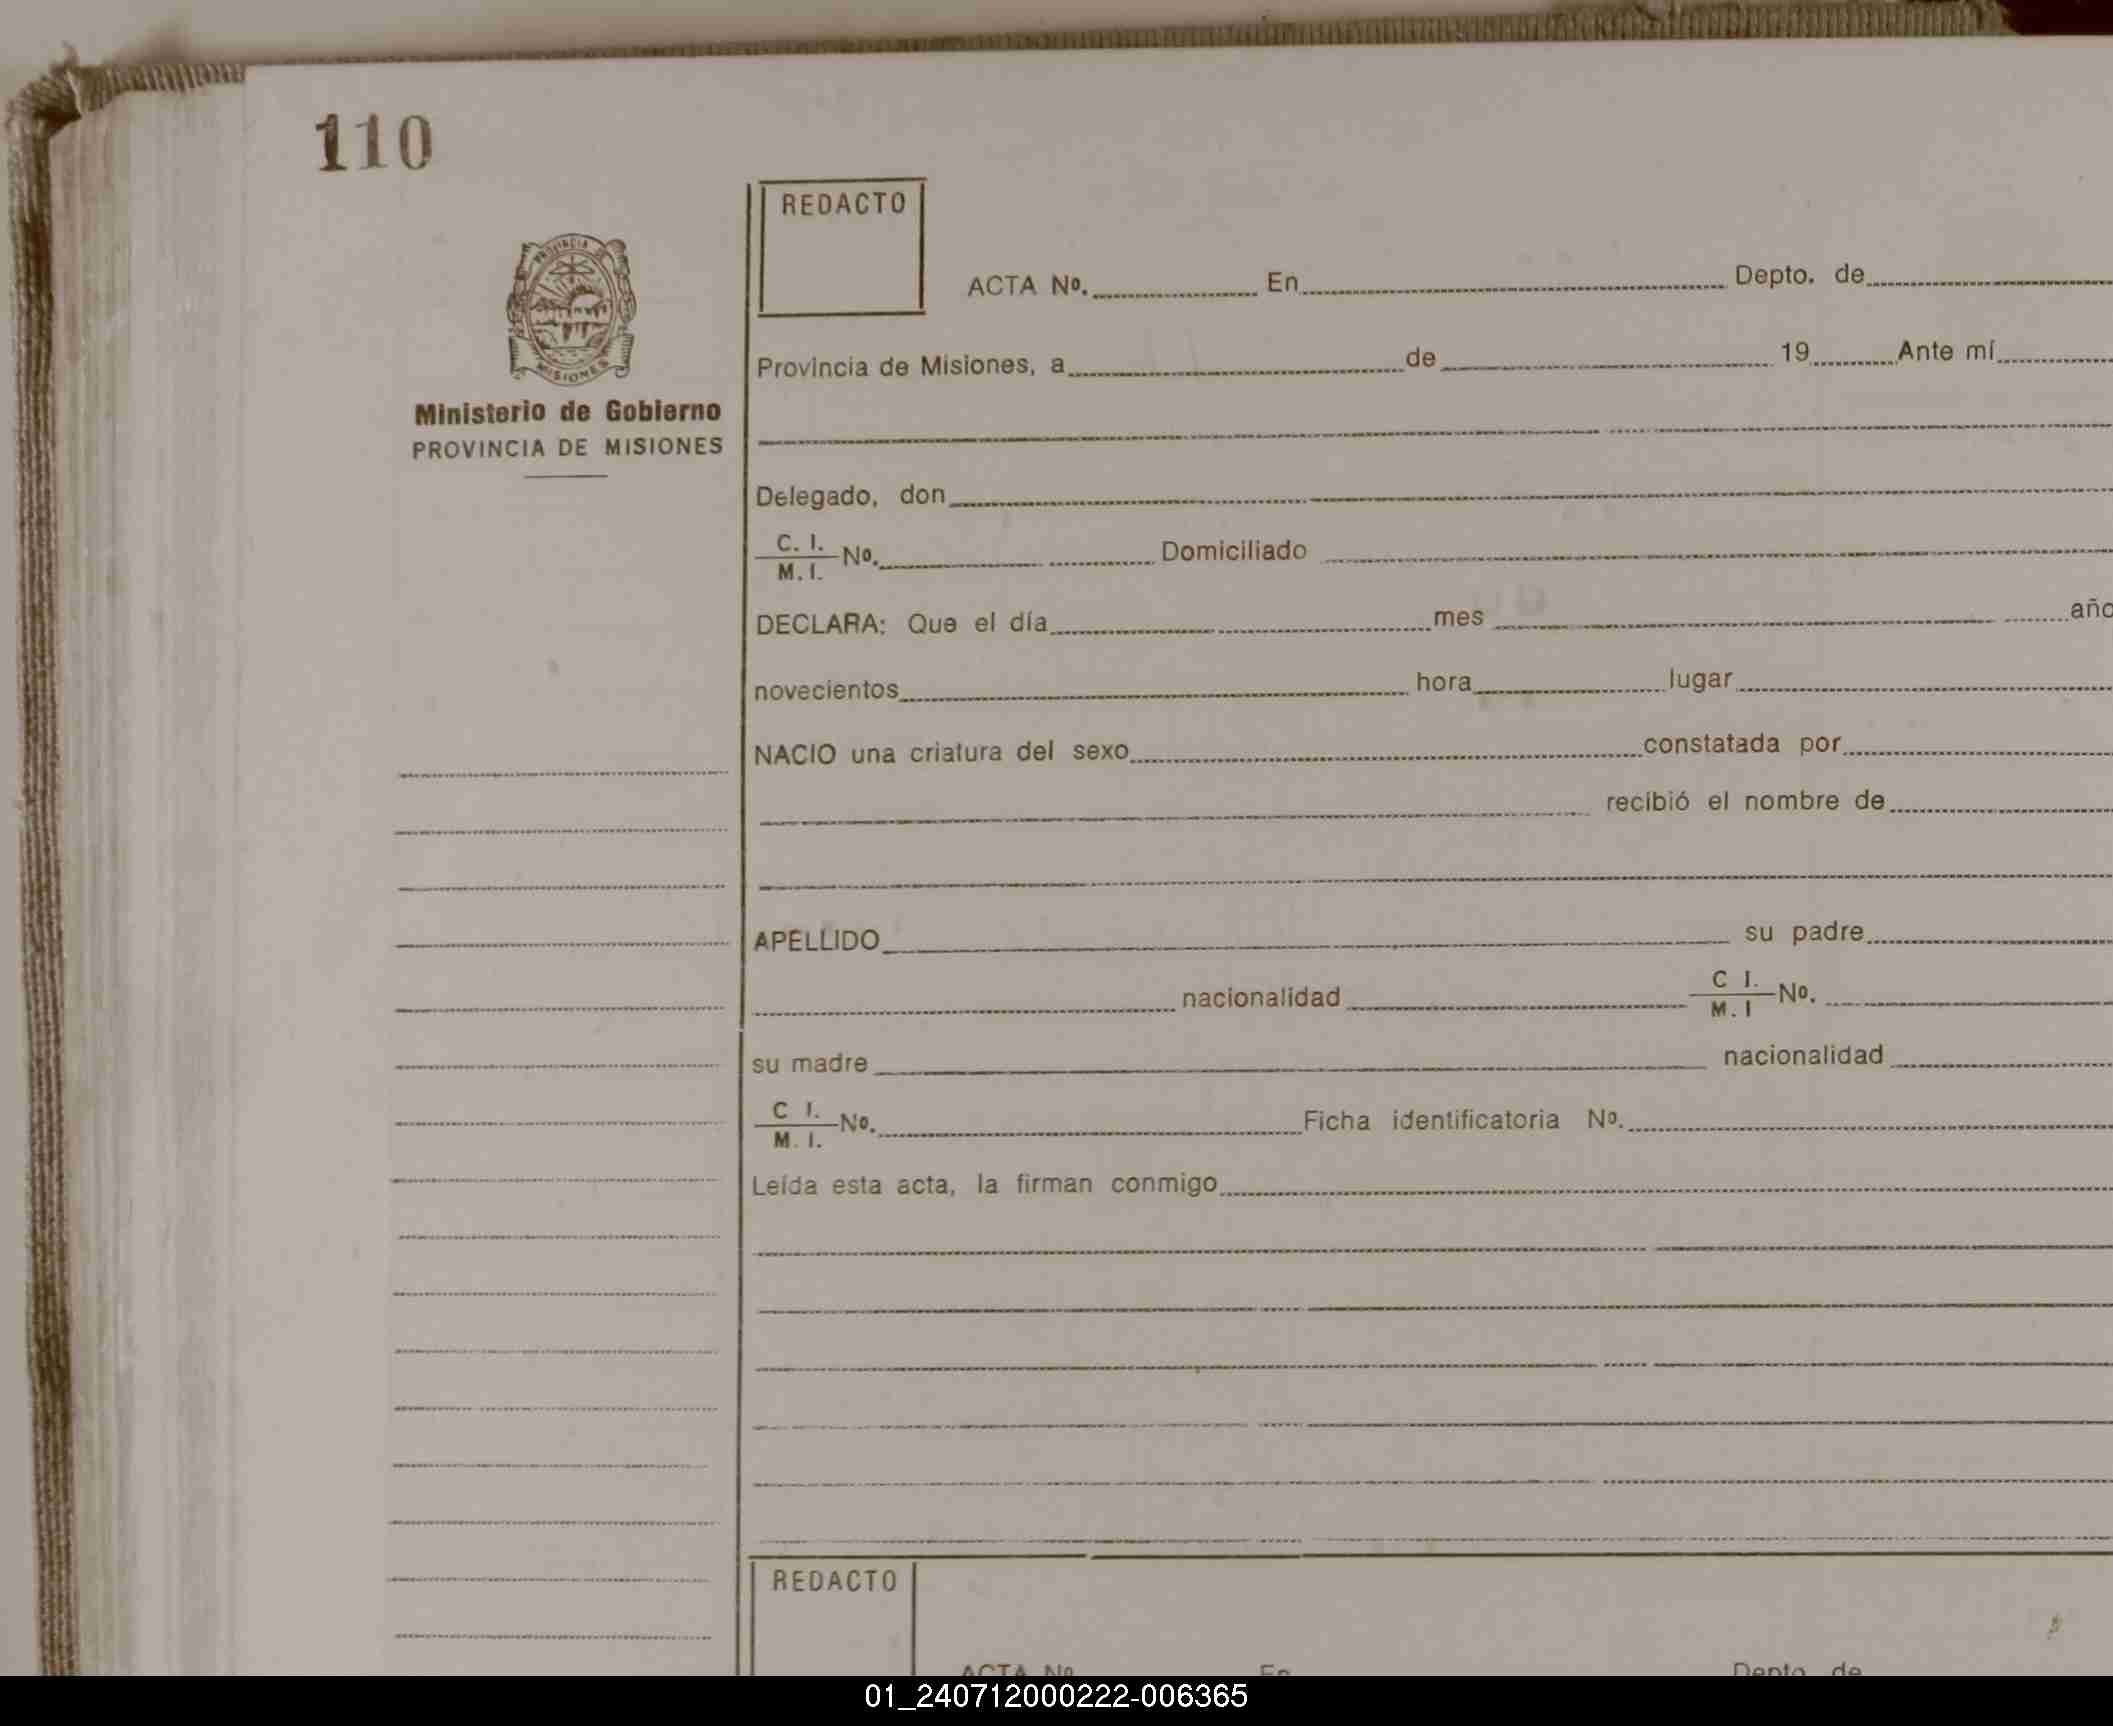 110
REDACTO
PROVINCIA DE
MISIONES
ACTA Nº. En Depto. de
Provincia de Misiones, a de 19 Ante mí
Ministerio de Gobierno
PROVINCIA DE MISIONES
Delegado, don
C. I.
M. I. Nº. Domiciliado
DECLARA: Que el día mes año
novecientos hora lugar
NACIO una criatura del sexo constatada por
recibió el nombre de
APELLIDO su padre
nacionalidad C I.
M. I Nº.
su madre nacionalidad
C I.
M. I. Nº. Ficha identificatoria Nº.
Leída esta acta, la firman conmigo
REDACTO
ACTA Nº En Depto. de
01_240712000222-006365